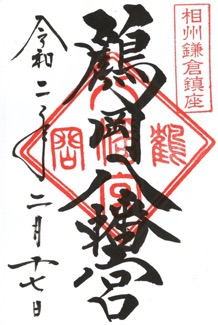 相州鎌倉鎮座
鶴岡八幡宮
鶴岡八幡宮
令和二年二月十七日